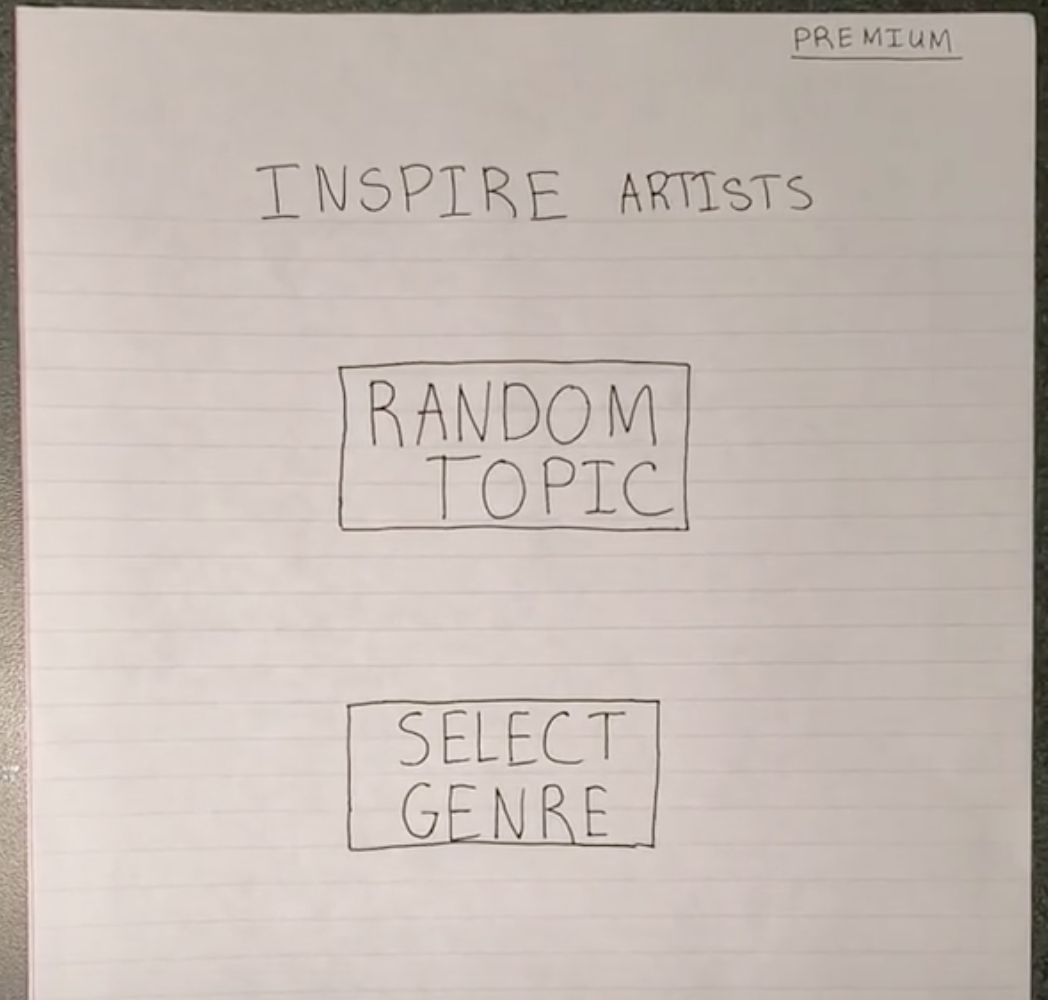 PREMIUM
INSPIRE ARTISTS
RANDOM
TOPIC
SELECT
GENRE